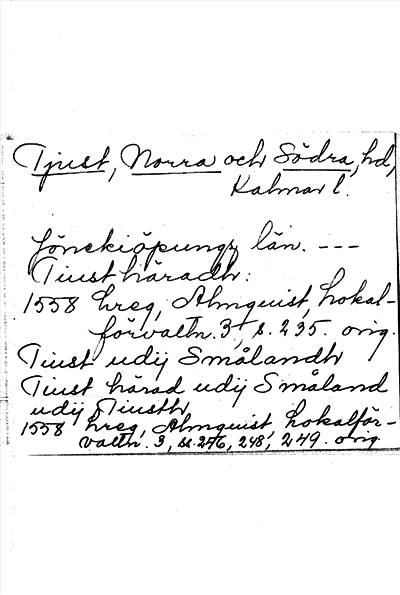 Tjust, Norra och Södra, hd,
Kalmar l.
Jönekiöpungz län. ---
Tiust häradh:
1558 hreg, Almquist, Lokal-
förvaltn. 3, s. 235. orig.
Tiust udij Smålandh
Tiust härad udij Småland
udij Tiusth
1558 hreg, Almquist, Lokalför-
valtn. 3, s. 246, 248, 249. orig